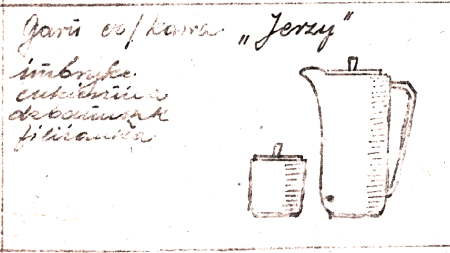 Garn. do/kawa „Jerzy"
imbryk
cukiernica
dzbanuszek
filiżanka